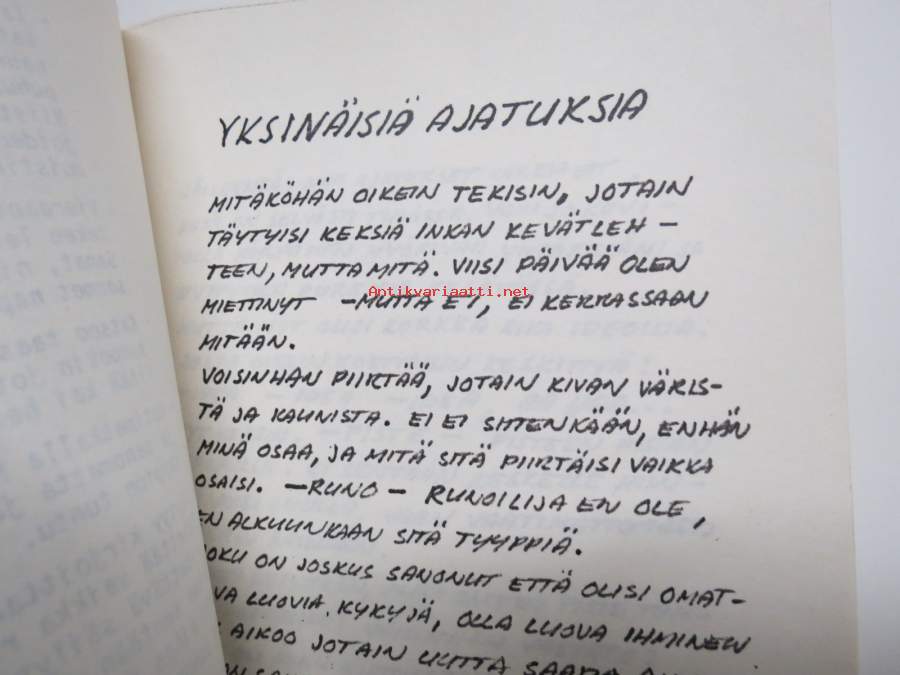 YKSINÄISIÄ AJATUKSIA
MITÄKÖHÄN OIKEIN TEKISIN, JOTAIN
TÄYTYISI KEKSIÄ INKAN KEVÄTLEH-
TEEN, MUTTA MITÄ. VIISI PÄIVÄÄ OLEN
Antikvariaatti.net
MIETTINYT -MUTTA EI, EI KERRASSAAN
MITÄÄN.
VOISINHAN PIIRTÄÄ, JOTAIN KIVAN VÄRIS-
TÄ JA KAUNISTA. EI EI SITTENKÄÄN, ENHÄN
MINÄ OSAA, JA MITÄ SITÄ PIIRTÄISI VAIKKA
OSAISI. -RUNO- RUNOILIJA EN OLE,
EN ALKUUNKAAN SITÄ TYYPPIÄ.
JOKU ON JOSKUS SANONUT ETTÄ OLISI OMAT-
TAVA LUOVIA KYKYJÄ, OLLA LUOVA IHMINEN
AIKOO JOTAIN UUTTA SAADA